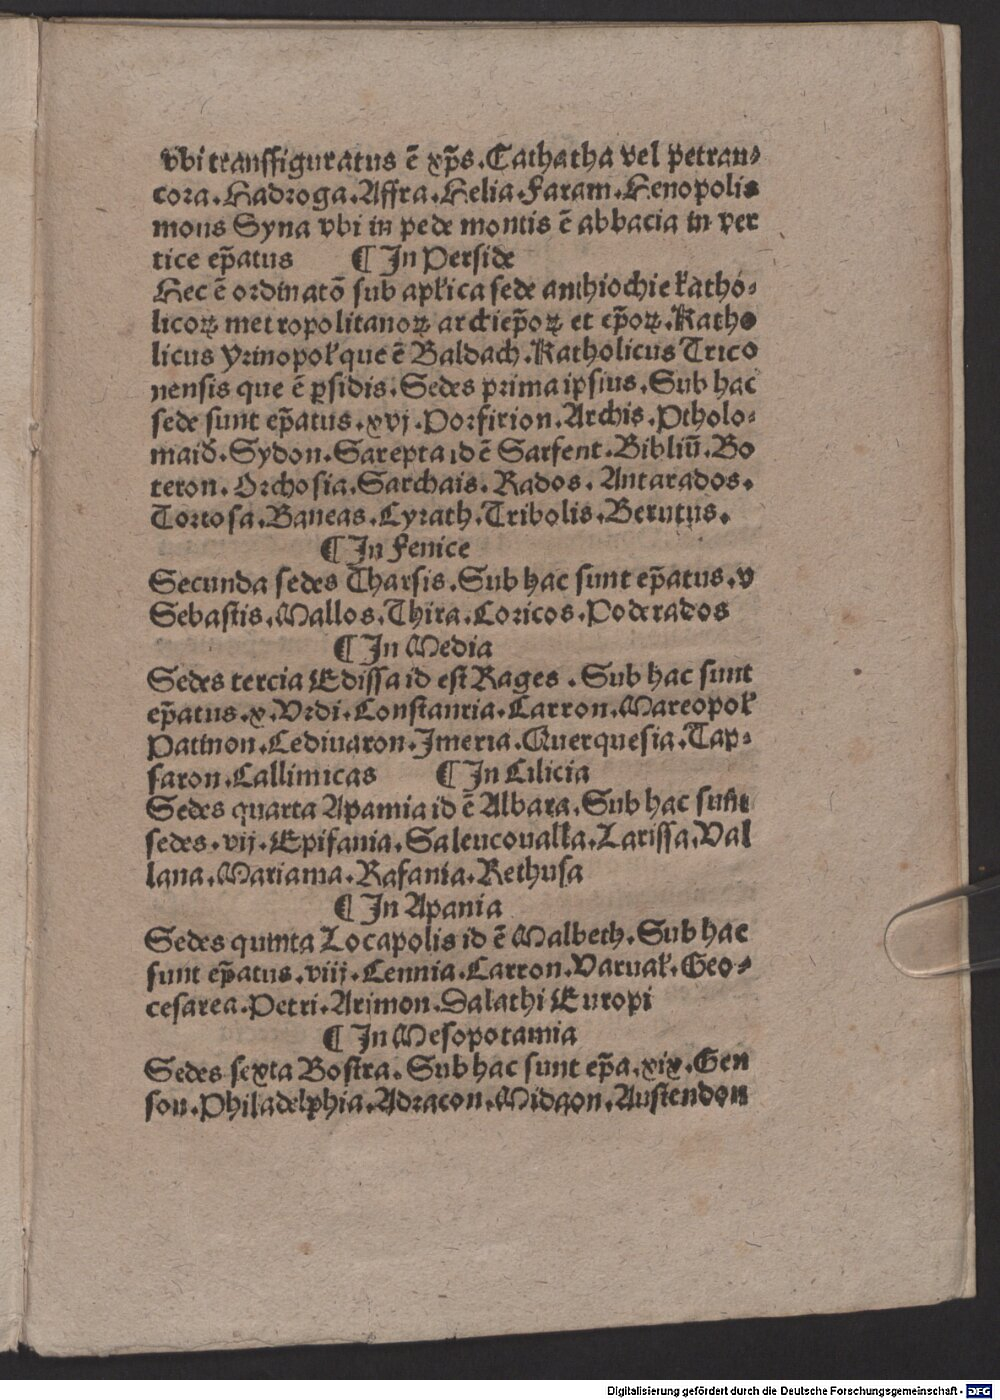 vbi transffiguratus ē xp̄s. Cathatha vel petran⸗
cora. Hadroga. Affra. Helia. Faram. Henopolis
mons Syna vbi in pede montis ē abbacia in ver
tice ep̄atus ¶ In Perside
Hec ē ordinatō sub apl̄ica sede anthiochie katho⸗
licoꝝ metropolitanoꝝ archiep̄oꝝ et ep̄oꝝ. Katho
licus Yrinopol̄ que ē Baldach. Katholicus Trico
nensis que ē ꝑsidis. Sedes prima ipsius. Sub hac
sede sunt ep̄atus. xvj. Porfirion. Archis. Ptholo⸗
maid̄. Sydon. Sarepta id ē Sarfent. Bibliū. Bo
teron. Orchosia. Sarchais. Rados. Antarados.
Tortosa. Baneas. Cyrath. Tribolis. Berutus.
¶ In Fenice
Secunda sedes Tharsis. Sub hac sunt ep̄atus. v
Sebastis. Mallos. Thira. Coricos. Poderados
¶ In Media
Sedes tercia Edissa id est Rages . Sub hac sunt
ep̄atus. x. Vrdi. Constantia. Carron. Mareopol̄
Patinon. Cediuaron. Imeria. Querquesia. Tap⸗
faron. Callinicas ¶ In Cilicia
Sedes quarta Apamia id ē Albara. Sub hac sunt
sedes. vij. Epifania. Saleucoualla. Larissa. Val
lana. Mariama. Rafania. Rethusa
¶ In Apania
Sedes quinta Locapolis id ē Malbech. Sub hac
sunt ep̄atus. viij. Cennia. Carron. Varual̄. Geo⸗
cesarea. Petri. Arimon. Salathi Europi
¶ In Mesopotamia
Sedes sexta Bostra. Sub hac sunt ep̄a. xix. Gen
son. Philadelphia. Adracon. Midaon. Austendon
Digitalisierung gefördert durch die Deutsche Forschungsgemeinschaft - DFG